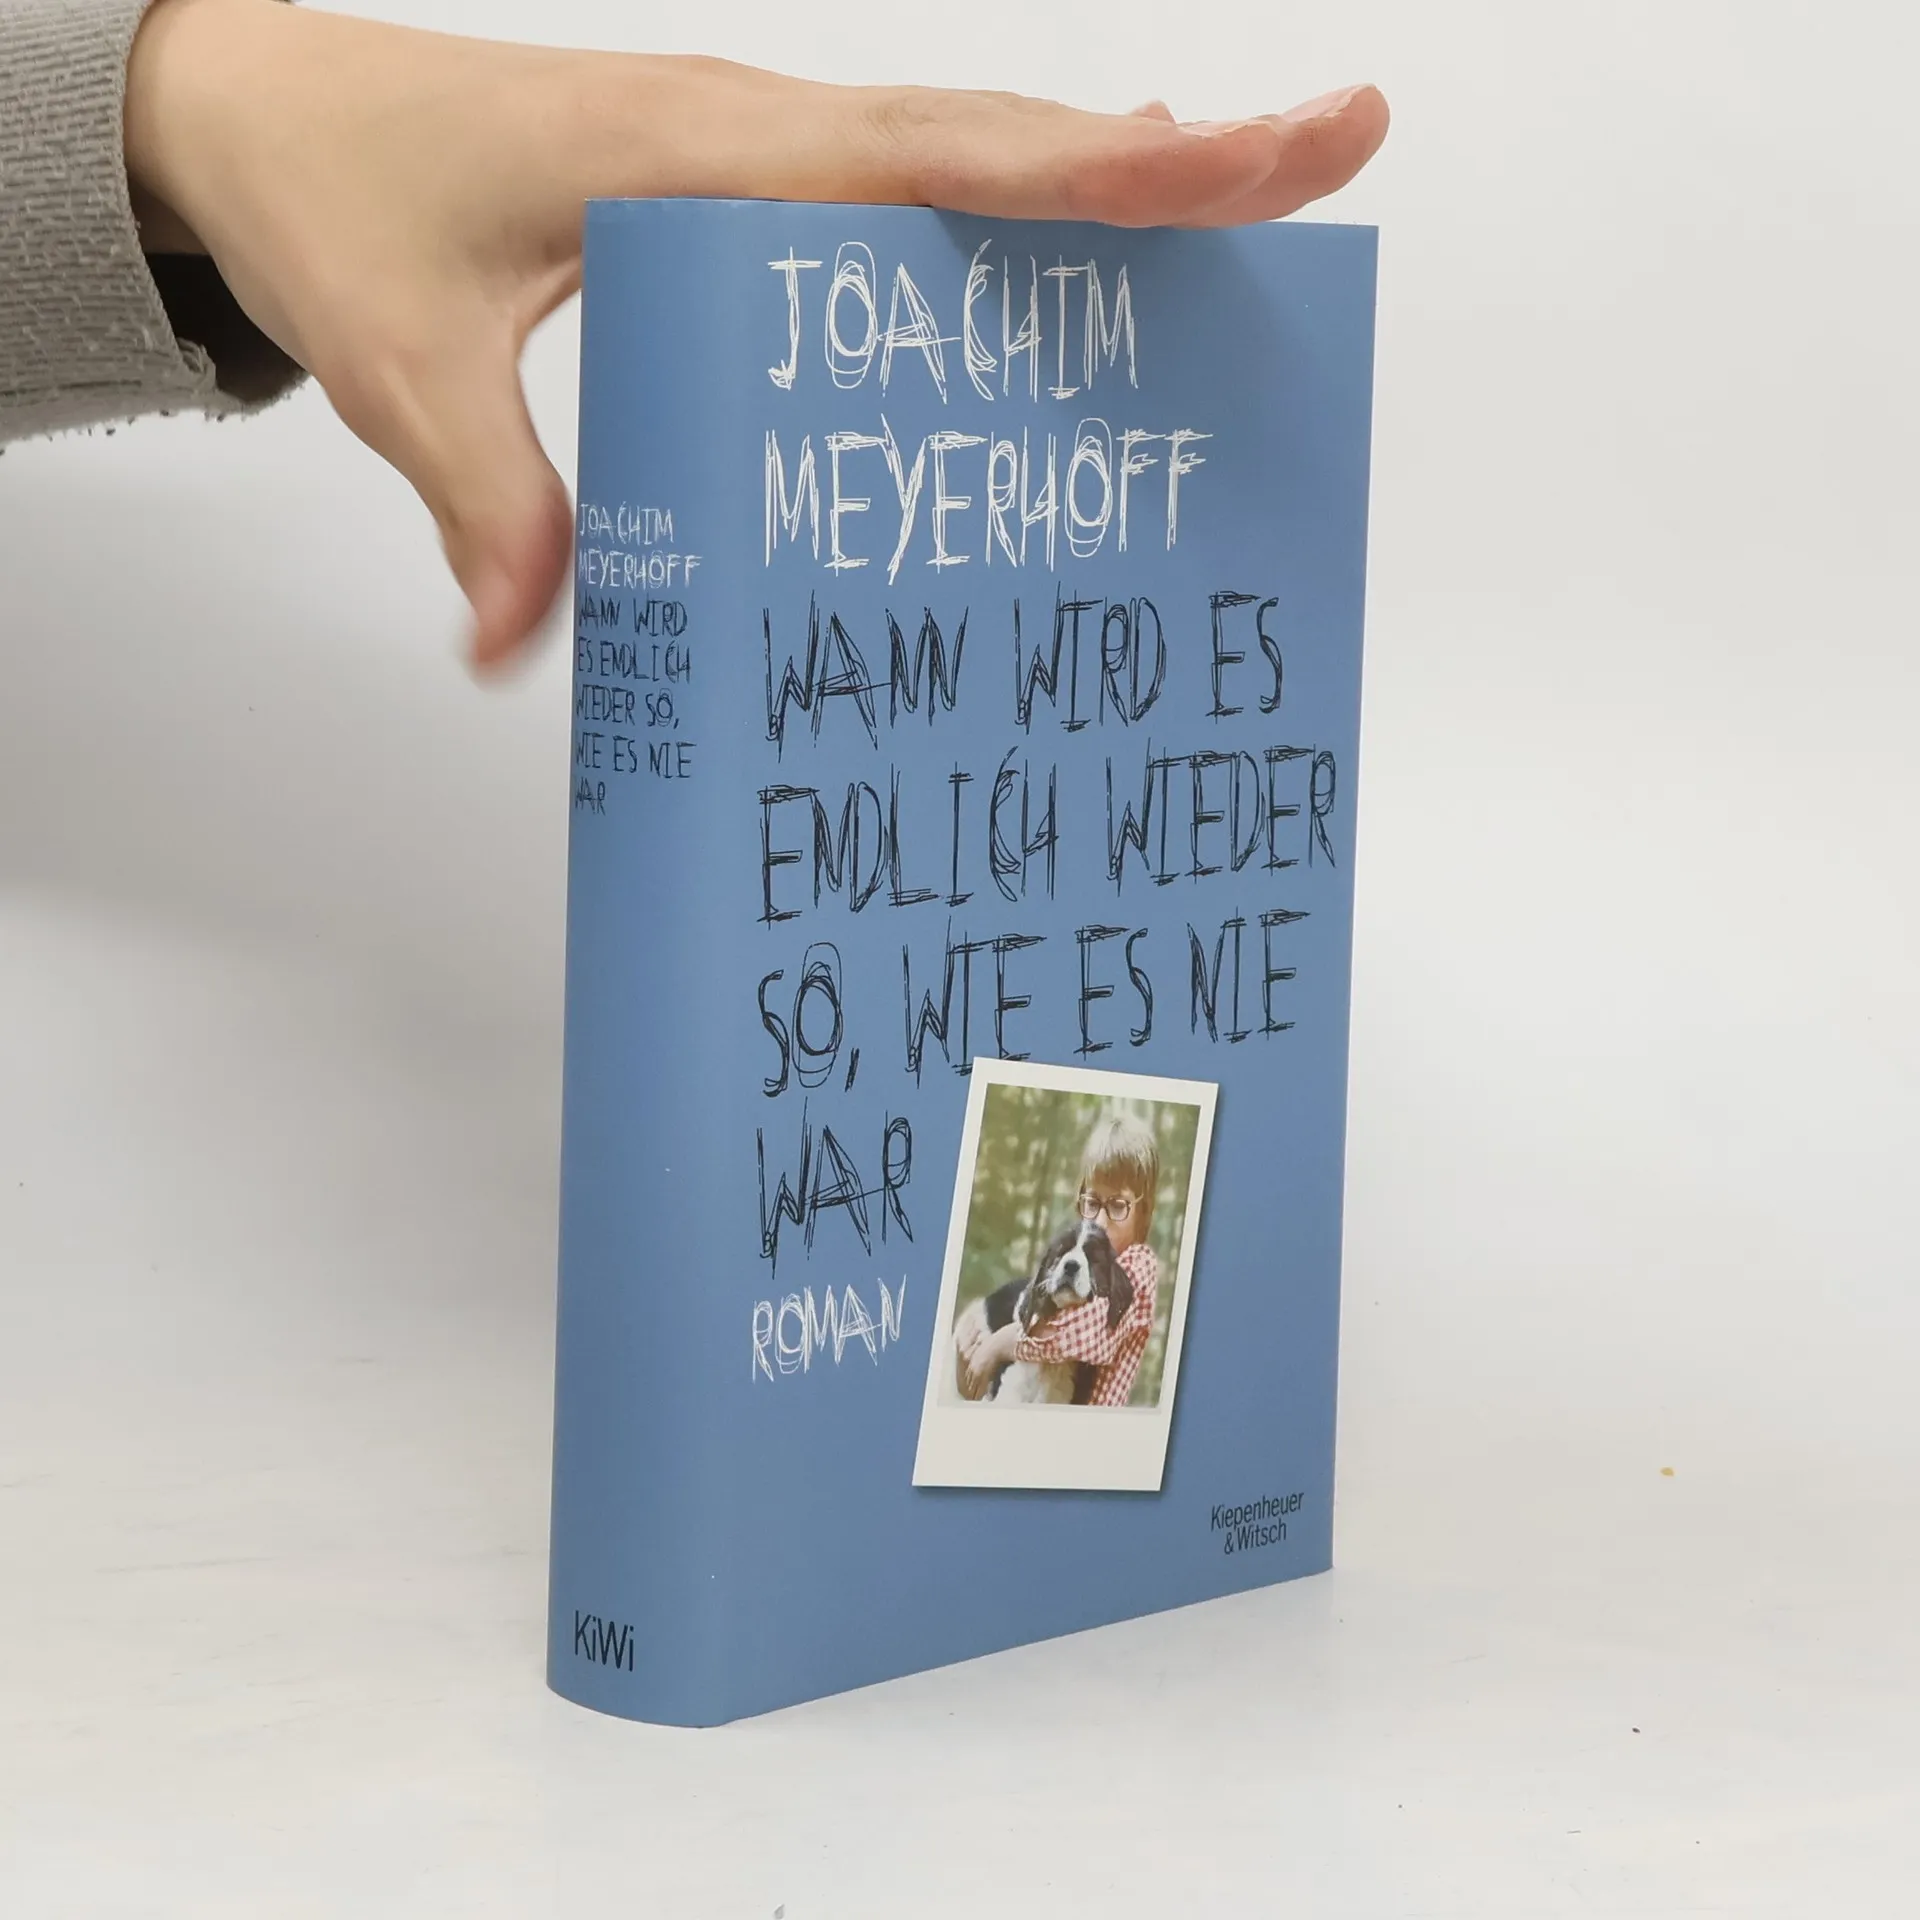 JOACHIM
MEYERHOFF
WANN WIRD ES
ENDLICH WIEDER
SO, WIE ES NIE
WAR
ROMAN
Kiepenheuer
&Witsch
JOACHIM
MEYERHOFF
WANN WIRD
ES ENDLICH
WIEDER SO,
WIE ES NIE
WAR
KiWi